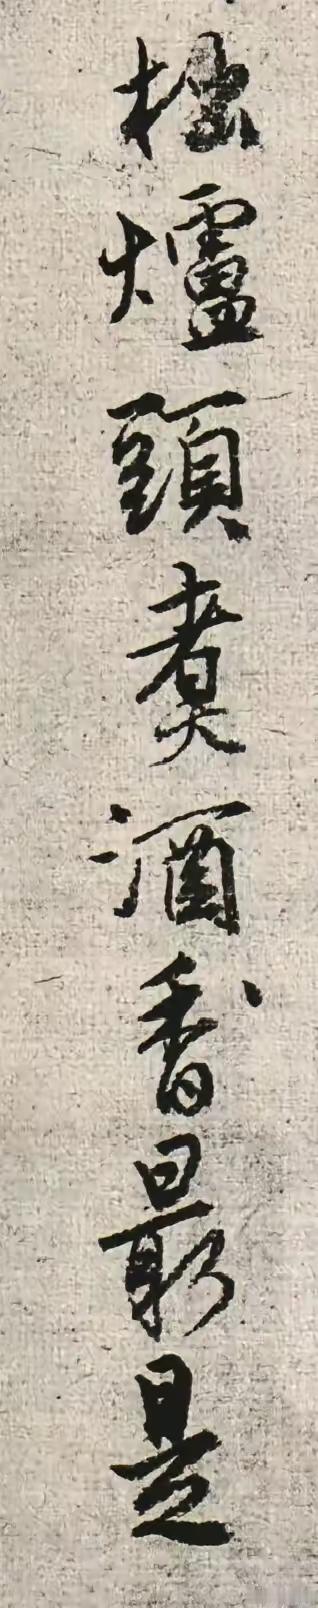 柮爐頭煑酒香最是